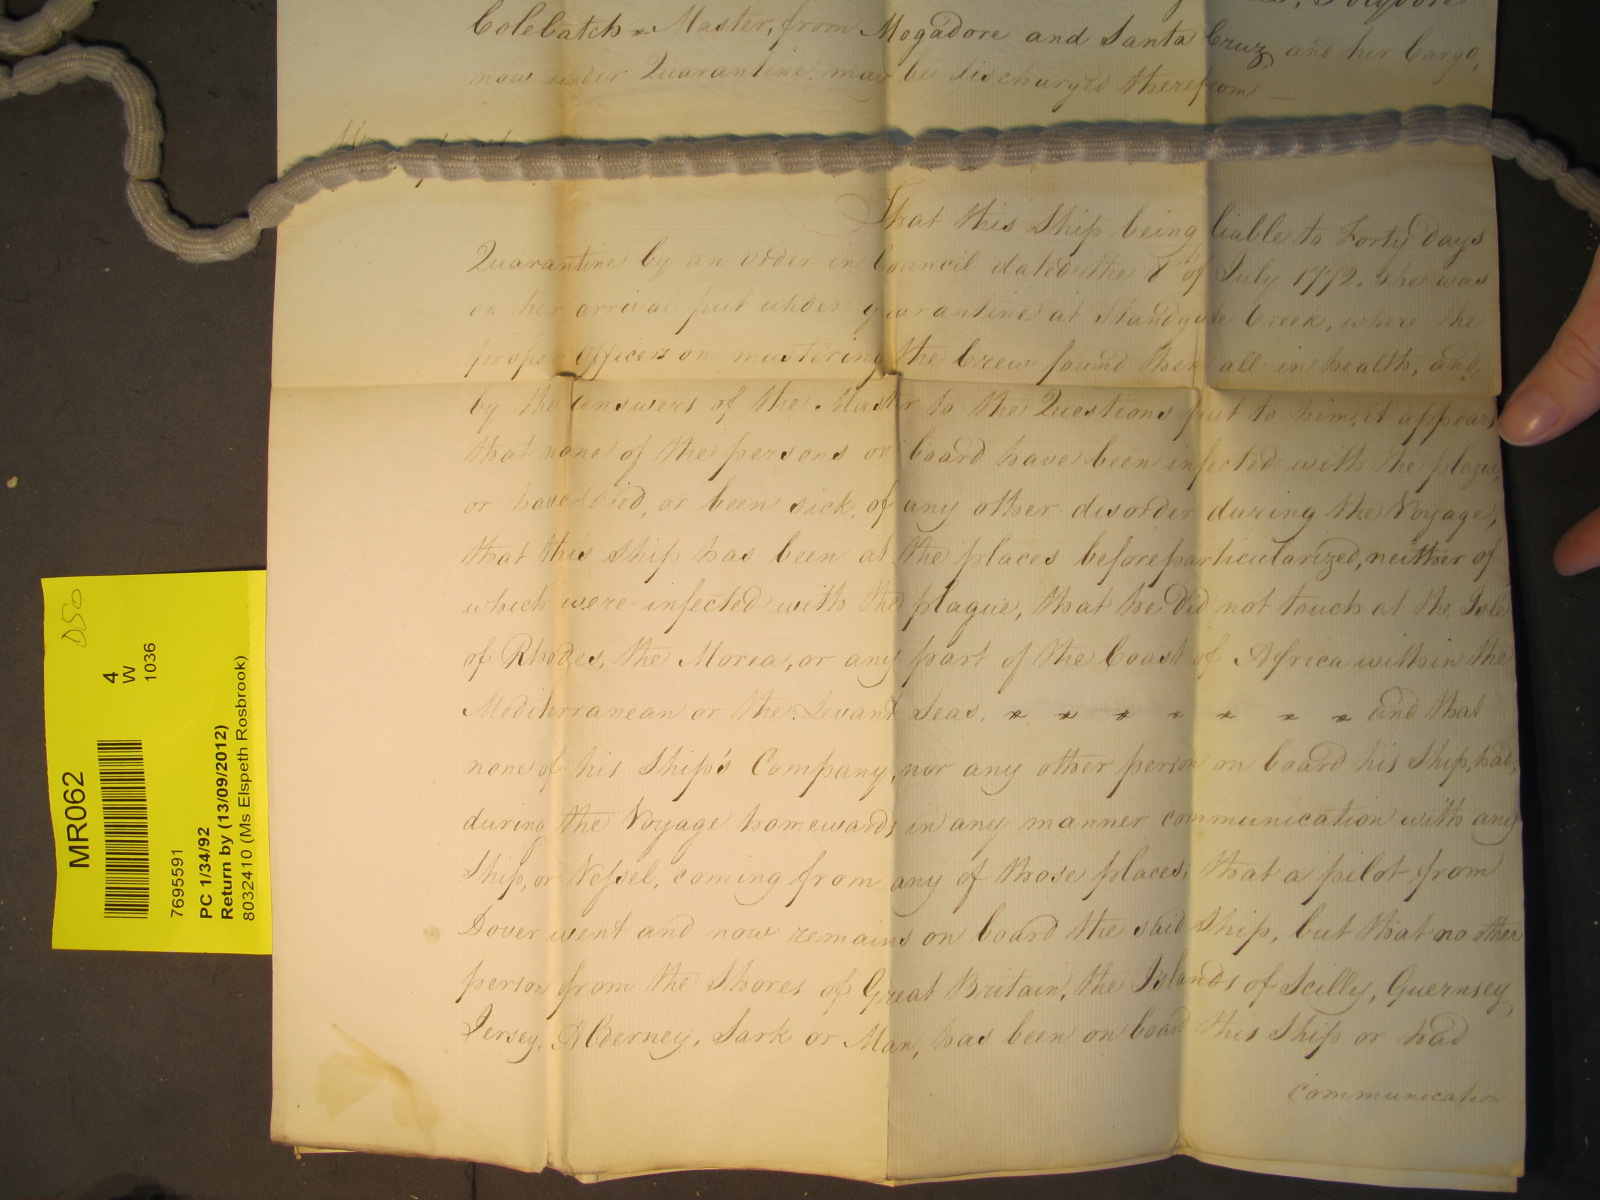 Colebatch Master, from Mogadore and Santa Cruz, and her Cargo,
now under Quarantine, may be discharged therefrom
That this Ship being liable to Forty days
Quarantine by an order in Council dated the 8th of July 1772, she was
on her arrival put under quarantine at Standgate Creek, where the
proper Officers on mustering the Crew found them all in health, and,
by the answers of the Master to the Questions put to him, it appears
that none of the persons on board have been infected with the plague,
or have died, or been sick, of any other disorder during the Voyage,
that this Ship has been at the places before particularized, neither of
which were infected with the plague, that he did not touch at the Isle
of Rhodes, the Morea, or any part of the Coast of Africa within the
Mediterranean or the Levant Seas, * * * * * * * and that
none of his Ship's Company, nor any other person on board his Ship, had,
during the Voyage homewards in any manner communication with any
Ship, or Vessel, coming from any of those places; that a pilot from
Dover went and now remains on board the said Ship, but that no other
person from the Shores of Great Britain, the Islands of Scilly, Guernsey
Jersey, Alderney, Sark or Man, has been on board this Ship or had
communication
DSO
MR062
4
W
1036
7695591
PC 1/34/92
Return by (13/09/2012)
8032410 (Ms Elspeth Rosbrook)